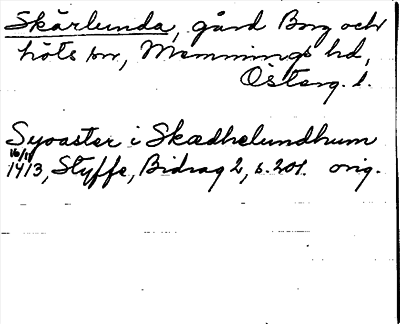 Skärlunda, gård Borg och
Löts sn, Memmings hd,
Österg. l.
Syoaster i Skædhelundhum
16/11
1413, Styffe, Bidrag 2, s. 201. orig.